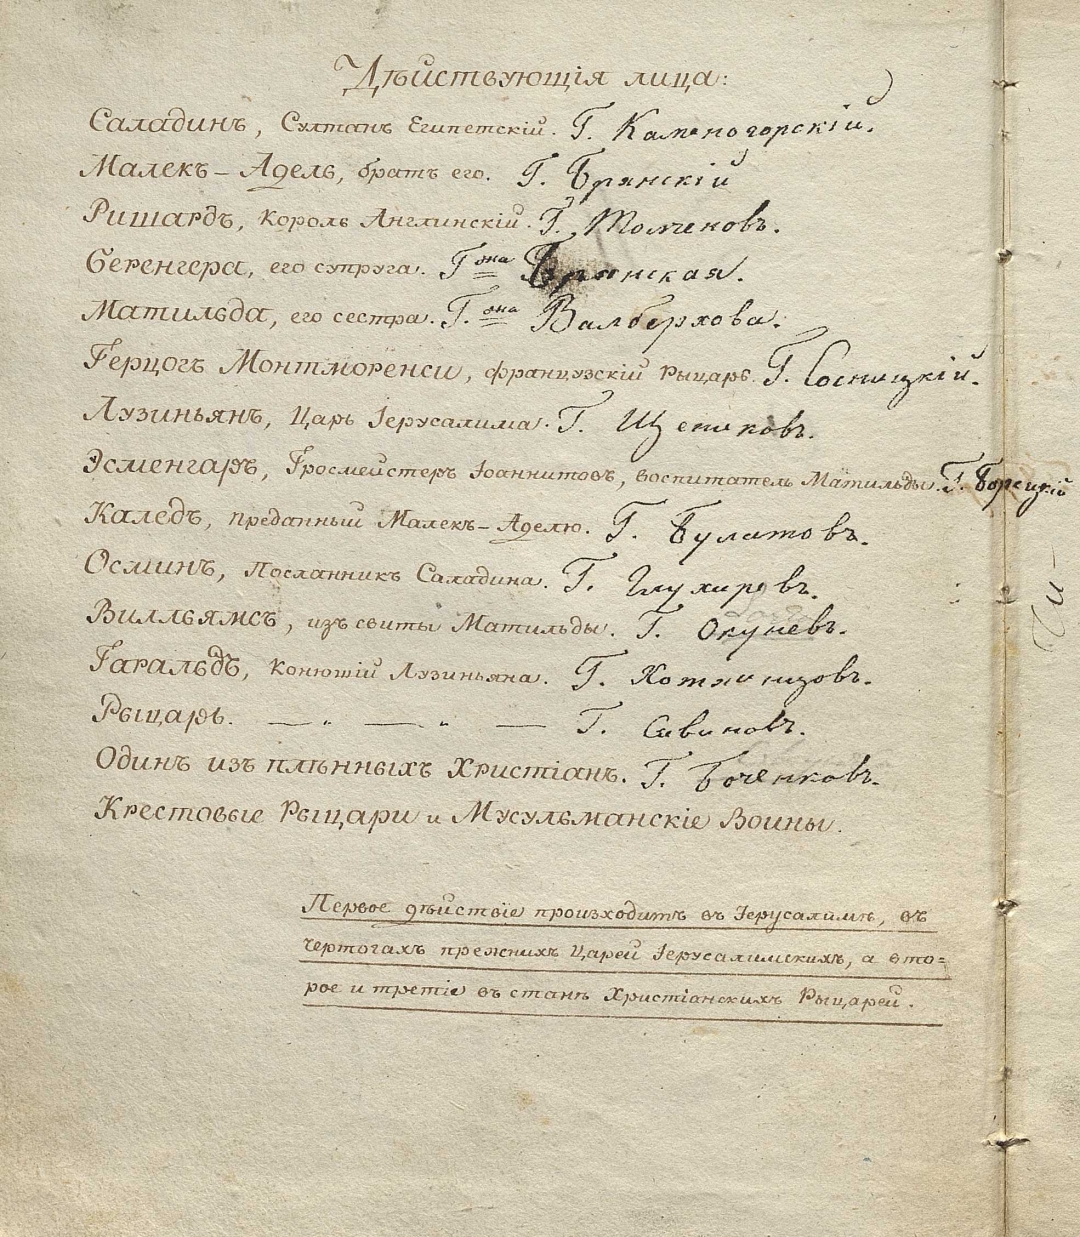 Дѣйствующія лица:
Саладинъ, Султанъ Египетскій. Г. Каменогорскій.
Малекъ-Адель, братъ его. Г. Брянскій
Ришардъ, Король Англинскій. Г. Толченовъ.
Беренгера, его супруга. Г.жа Брянская.
Матильда, его сестра. Г.жа Валберхова.
Герцогъ Монтморенси, французскій Рыцарь. Г. Сосницкій.
Лузиньянъ, Царь Іерусалима. Г. Щениковъ.
Эсменгаръ, Гросмейстеръ Іоаннитовъ, воспитатель Матильды. Г. Борецкій
Каледъ, преданный Малекъ-Аделю. Г. Булатовъ.
Осминъ, Посланникъ Саладина. Г. Глухаревъ.
Вилльямсъ, изъ свиты Матильды. Г. Окуневъ.
Гаральдъ, Конюшій Лузиньяна. Г.
Рыцарь. — „ — „ — Г. Савиновъ.
Одинъ изъ плѣнныхъ Христіанъ. Г. Боченковъ.
Крестовые Рыцари и Мусульманскіе Воины.
Первое дѣйствіе произходитъ въ Іерусалимѣ, въ
чертогахъ прежнихъ Царей Іерусалимскихъ, а вто=
рое и третіе въ станѣ Христіанскихъ Рыцарей.